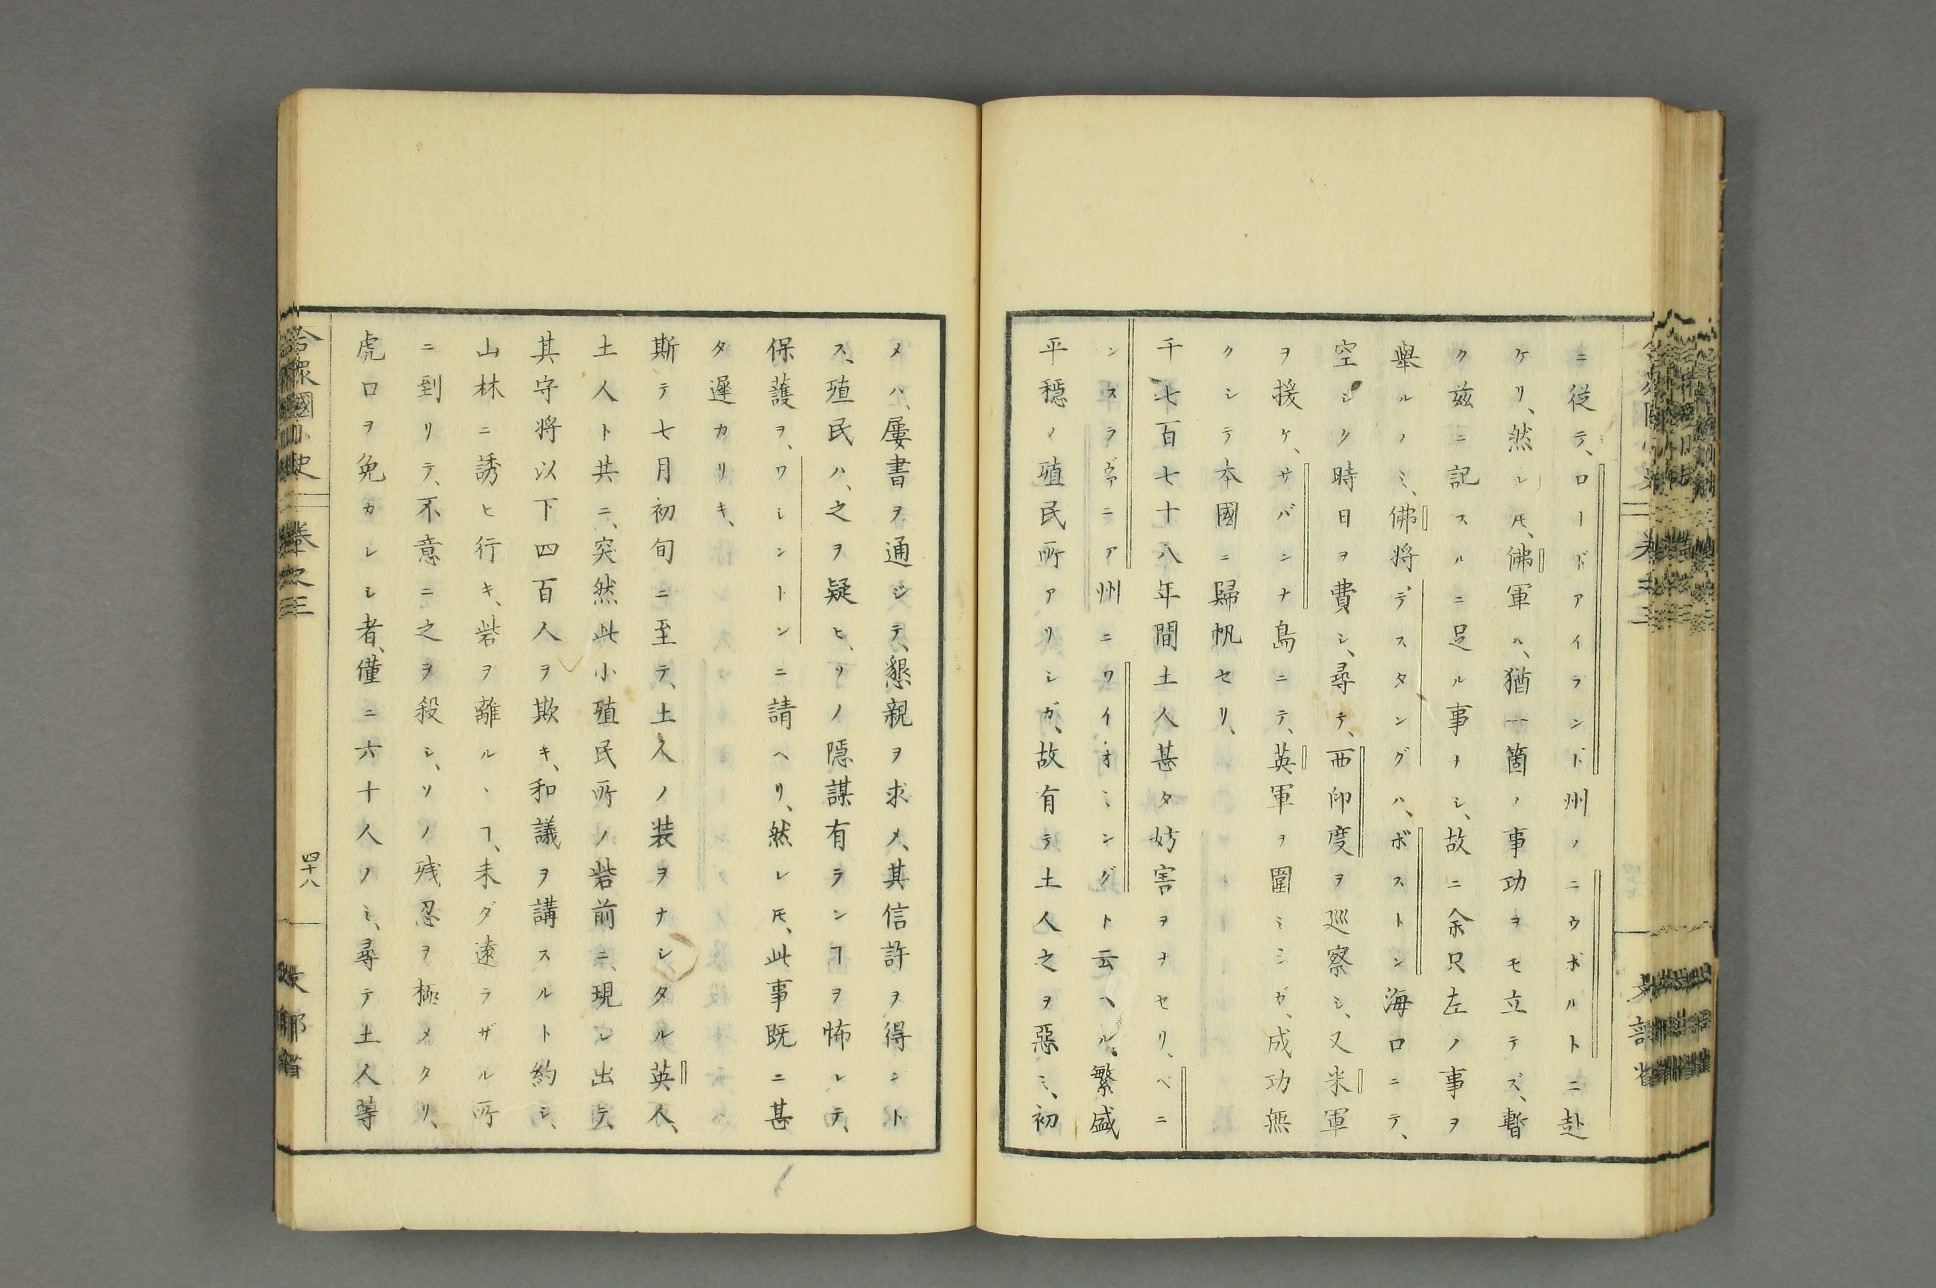 ニ從テ、ロードアイランド州ノニウポルトニ赴
ケリ、然レ𪜈、佛軍ハ、猶一箇ノ事功ヲモ立テズ、暫
ク茲ニ記スルニ足ル事ナシ、故ニ余只左ノ事ヲ
舉ルノミ、佛將デスタングハ、ボストン海口ニテ、
空シク時日ヲ費シ、尋テ、西印度ヲ巡察シ、又米軍
ヲ援ケ、サバンナ島ニテ、英軍ヲ圍ミシガ、成功無
クシテ本國ニ歸帆セリ、
千七百七十八年間土人甚タ妨害ヲナセリ、ペニ
ンスラヴァニア州ニワイオミングト云ヘル、繁盛
平穩ノ殖民所アリシガ、故有テ土人之ヲ惡ミ、初
メハ、屢書ヲ通シテ、懇親ヲ求メ、其信許ヲ得ント
ス、殖民ハ、之ヲ疑ヒ、ソノ隱謀有ランヿヲ怖レテ、
保護ヲ、ワシントンニ請ヘリ、然レ𪜈、此事既ニ甚
タ遲カリキ、
斯テ七月初旬ニ至テ、土人ノ装ヲナシタル英人、
土人ト共ニ、突然此小殖民所ノ砦前ニ、現レ出テ、
其守將以下四百人ヲ欺キ、和議ヲ講スルト約シ、
山林ニ誘ヒ行キ、砦ヲ離ルヽヿ、未ダ遠ラザル所
ニ到リテ、不意ニ之ヲ殺シ、ソノ残忍ヲ極メタリ、
虎口ヲ免カレシ者、僅ニ六十人ノミ、尋テ土人等
合衆國小史 卷之三
四十八
文部省